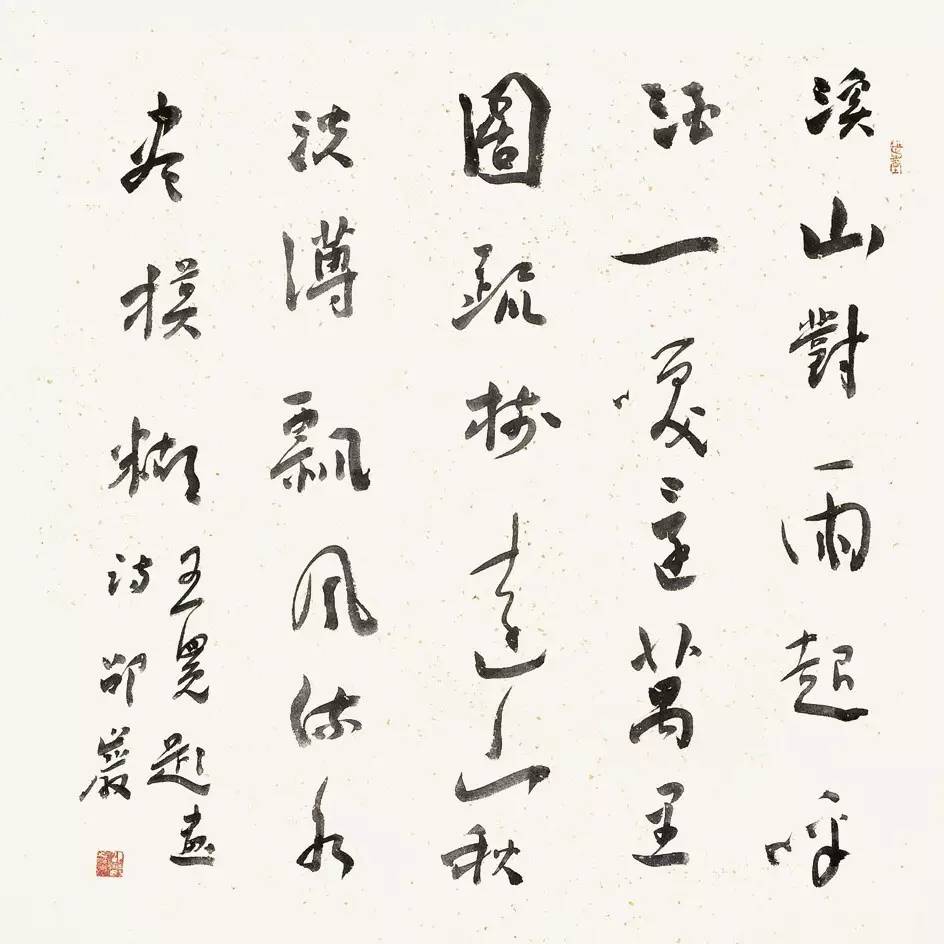 溪山對雨起呼
酒一萬里
圖疏樹遠山秋
淡薄飄風流水
盡模糊
王冕題畫
詩邵巖